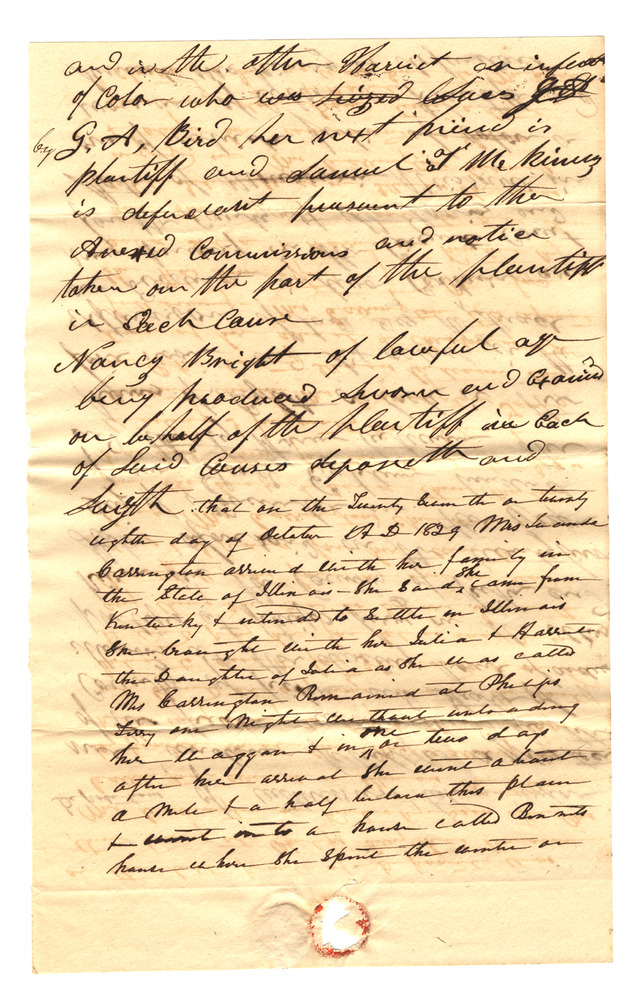 and in the other Harriet an infant
of Color who was seized Sues
by G. A, Bird her next friend is
plantiff and Samuel T McKinney
is defendant persuant to the
Anexed Commissions and notice
taken on the part of the plaintiff
in Each Cause
Nancy Bright of lawful age
being produced Sworn and Examind
on behalf of the plantiff in Each
of Said Causes deposeth and
Saigth that on the Twenty Seventh or twenty
eighth day of October A D 1829 Mrs Lucinda
Carrington arrived with her family in
the State of Illinois - She Said She Came from
Kentucky & intended to Settle in Illinois
She brought with her Julia & Harriet
the Daughter of Julia as She was called
Mrs Carrington Remained at Philips
Ferry one Night without unloading
her Waggon & in one or two days
after her arrival She went about
a Mile & a half below this place
& went into a house called Bennets
house where She Spent the winter or